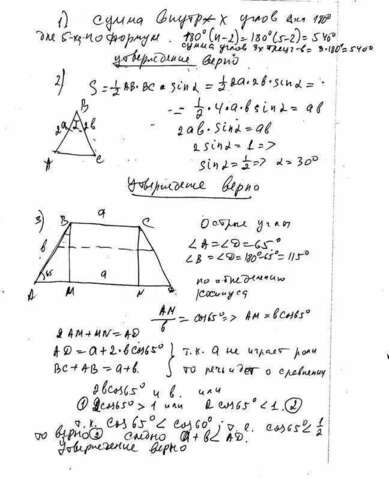 1) сумма внутр-х углов для 180°
для 5-ка по формул. 180°(n-2) = 180°(5-2) = 540°
сумма углов 3х треуг-в = 3·180° = 540°
утверждение верно
2) S = 1/2 AB·BC · sin α = 1/2 2a·2b·sin α =
= 1/2 · 4·a·b sin α = ab
2ab·sin α = ab
2 sin α = 1 =>
sin α = 1/2 => α = 30°
B
2a α 2b
A C
Утверждение верно
3) B a C
b
65 a
A M N D
Острые углы
∠A = ∠D = 65°
∠B = ∠D = 180°-65° = 115°
по определению
косинуса
AM/b = cos 65° => AM = b cos 65°
2 AM + MN = AD
AD = a + 2·b cos 65°
BC + AB = a + b.
т.к. a не играет роли
то речь идет о сравнении
2b cos 65° и b. или
① 2cos 65° > 1 или 2 cos 65° < 1. ②
т.к. cos 65° < cos 60°, т.е. cos 65° < 1/2
то верно ② a + b < AD.
Утверждение верно